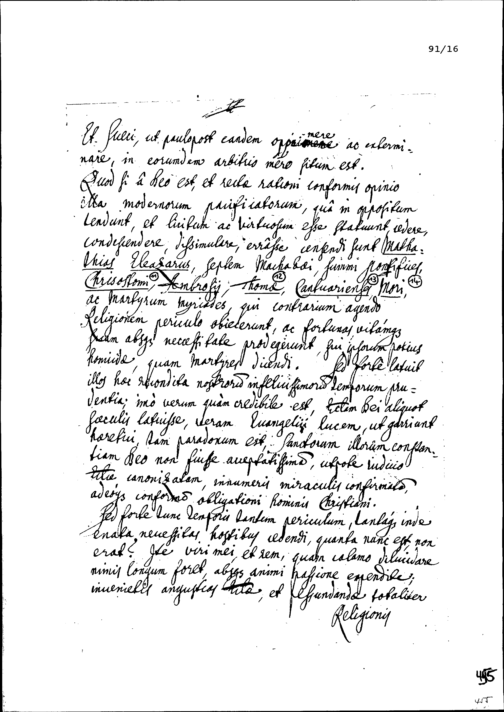 91/16
Et Sueci, ut paulopost eandem opprimere ac extermi-
nare, in eorumdem arbitrio mero situm est.
Quod si à Deo est, et recta rationi conformis opinio
ista modernorum pacificatorum, quâ in oppositum
tendunt, et licitum ac virtuosum esse statuunt cedere,
condescendere, dissimulare, errâsse censendi sunt Matha-
thias Eleasarus, septem Machabæi, summi Pontifices,
Chrisostomi Ambrosij Thomæ Cantuariensis Mori,
ac Martyrum myriades, qui contrarium agendo
Religionem periculo obiecerunt, ac fortunas vitamqs
suam absqs necessitate prodegerunt, sui ipsorum potius
homicidæ, quam Martyres dicendi. Sed forte latuit
illos hæc recondita nostrorum infelicissimorum temporum pru-
dentia; imò verum quàm credibile est, Dei aliquot
sæculis latuisse, veram Euangelij lucem, ut garriunt
hæretici, tam paradoxum est, Sanctorum illorum constan-
tiam Deo non fuisse acceptatissimam, utpote iudicio
canonizatam, innumeris miraculis confirmatam,
adeoqs conformem obligationi hominis Christiani.
Sed forte tunc temporis tantum periculum, tantaqs inde
enata necessitas, hostibus cedendi, quanta nunc est non
erat? Ite viri mei et rem, quam calamo dilucidare
nimis longum foret, absqs animi passione expendite;
invenietis angustias et
Religionis
495
455